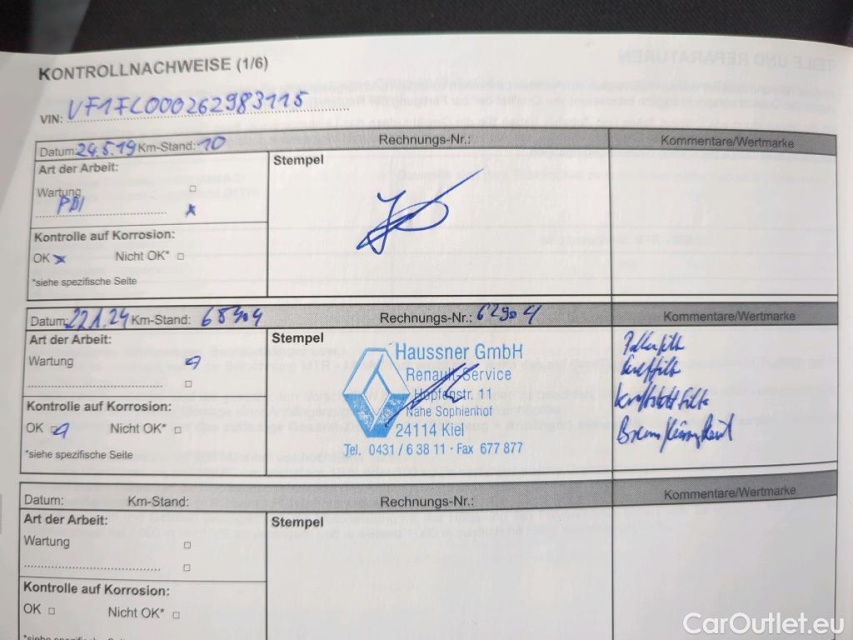 KONTROLLNACHWEISE (1/6)
VIN: VF1FL000262983115
Datum: 24.5.19 Km-Stand: 10 Rechnungs-Nr.: Kommentare/Wertmarke
Art der Arbeit: Stempel
Wartung
PDI
Kontrolle auf Korrosion:
OK Nicht OK*
*siehe spezifische Seite
Datum: 22.1.24 Km-Stand: 68304 Rechnungs-Nr.: 62904 Kommentare/Wertmarke
Art der Arbeit: Stempel
Wartung
Kontrolle auf Korrosion:
OK Nicht OK*
*siehe spezifische Seite
Haussner GmbH
Renault-Service
Hopfenstr. 11
Nähe Sophienhof
24114 Kiel
Tel. 0431 / 6 38 11 · Fax 677 877
Pollenfilt
Luftfilt
Kraftstofffilte
Bremsflüssigkeit
Datum: Km-Stand: Rechnungs-Nr.: Kommentare/Wertmarke
Art der Arbeit: Stempel
Wartung
Kontrolle auf Korrosion:
OK Nicht OK*
CarOutlet.eu